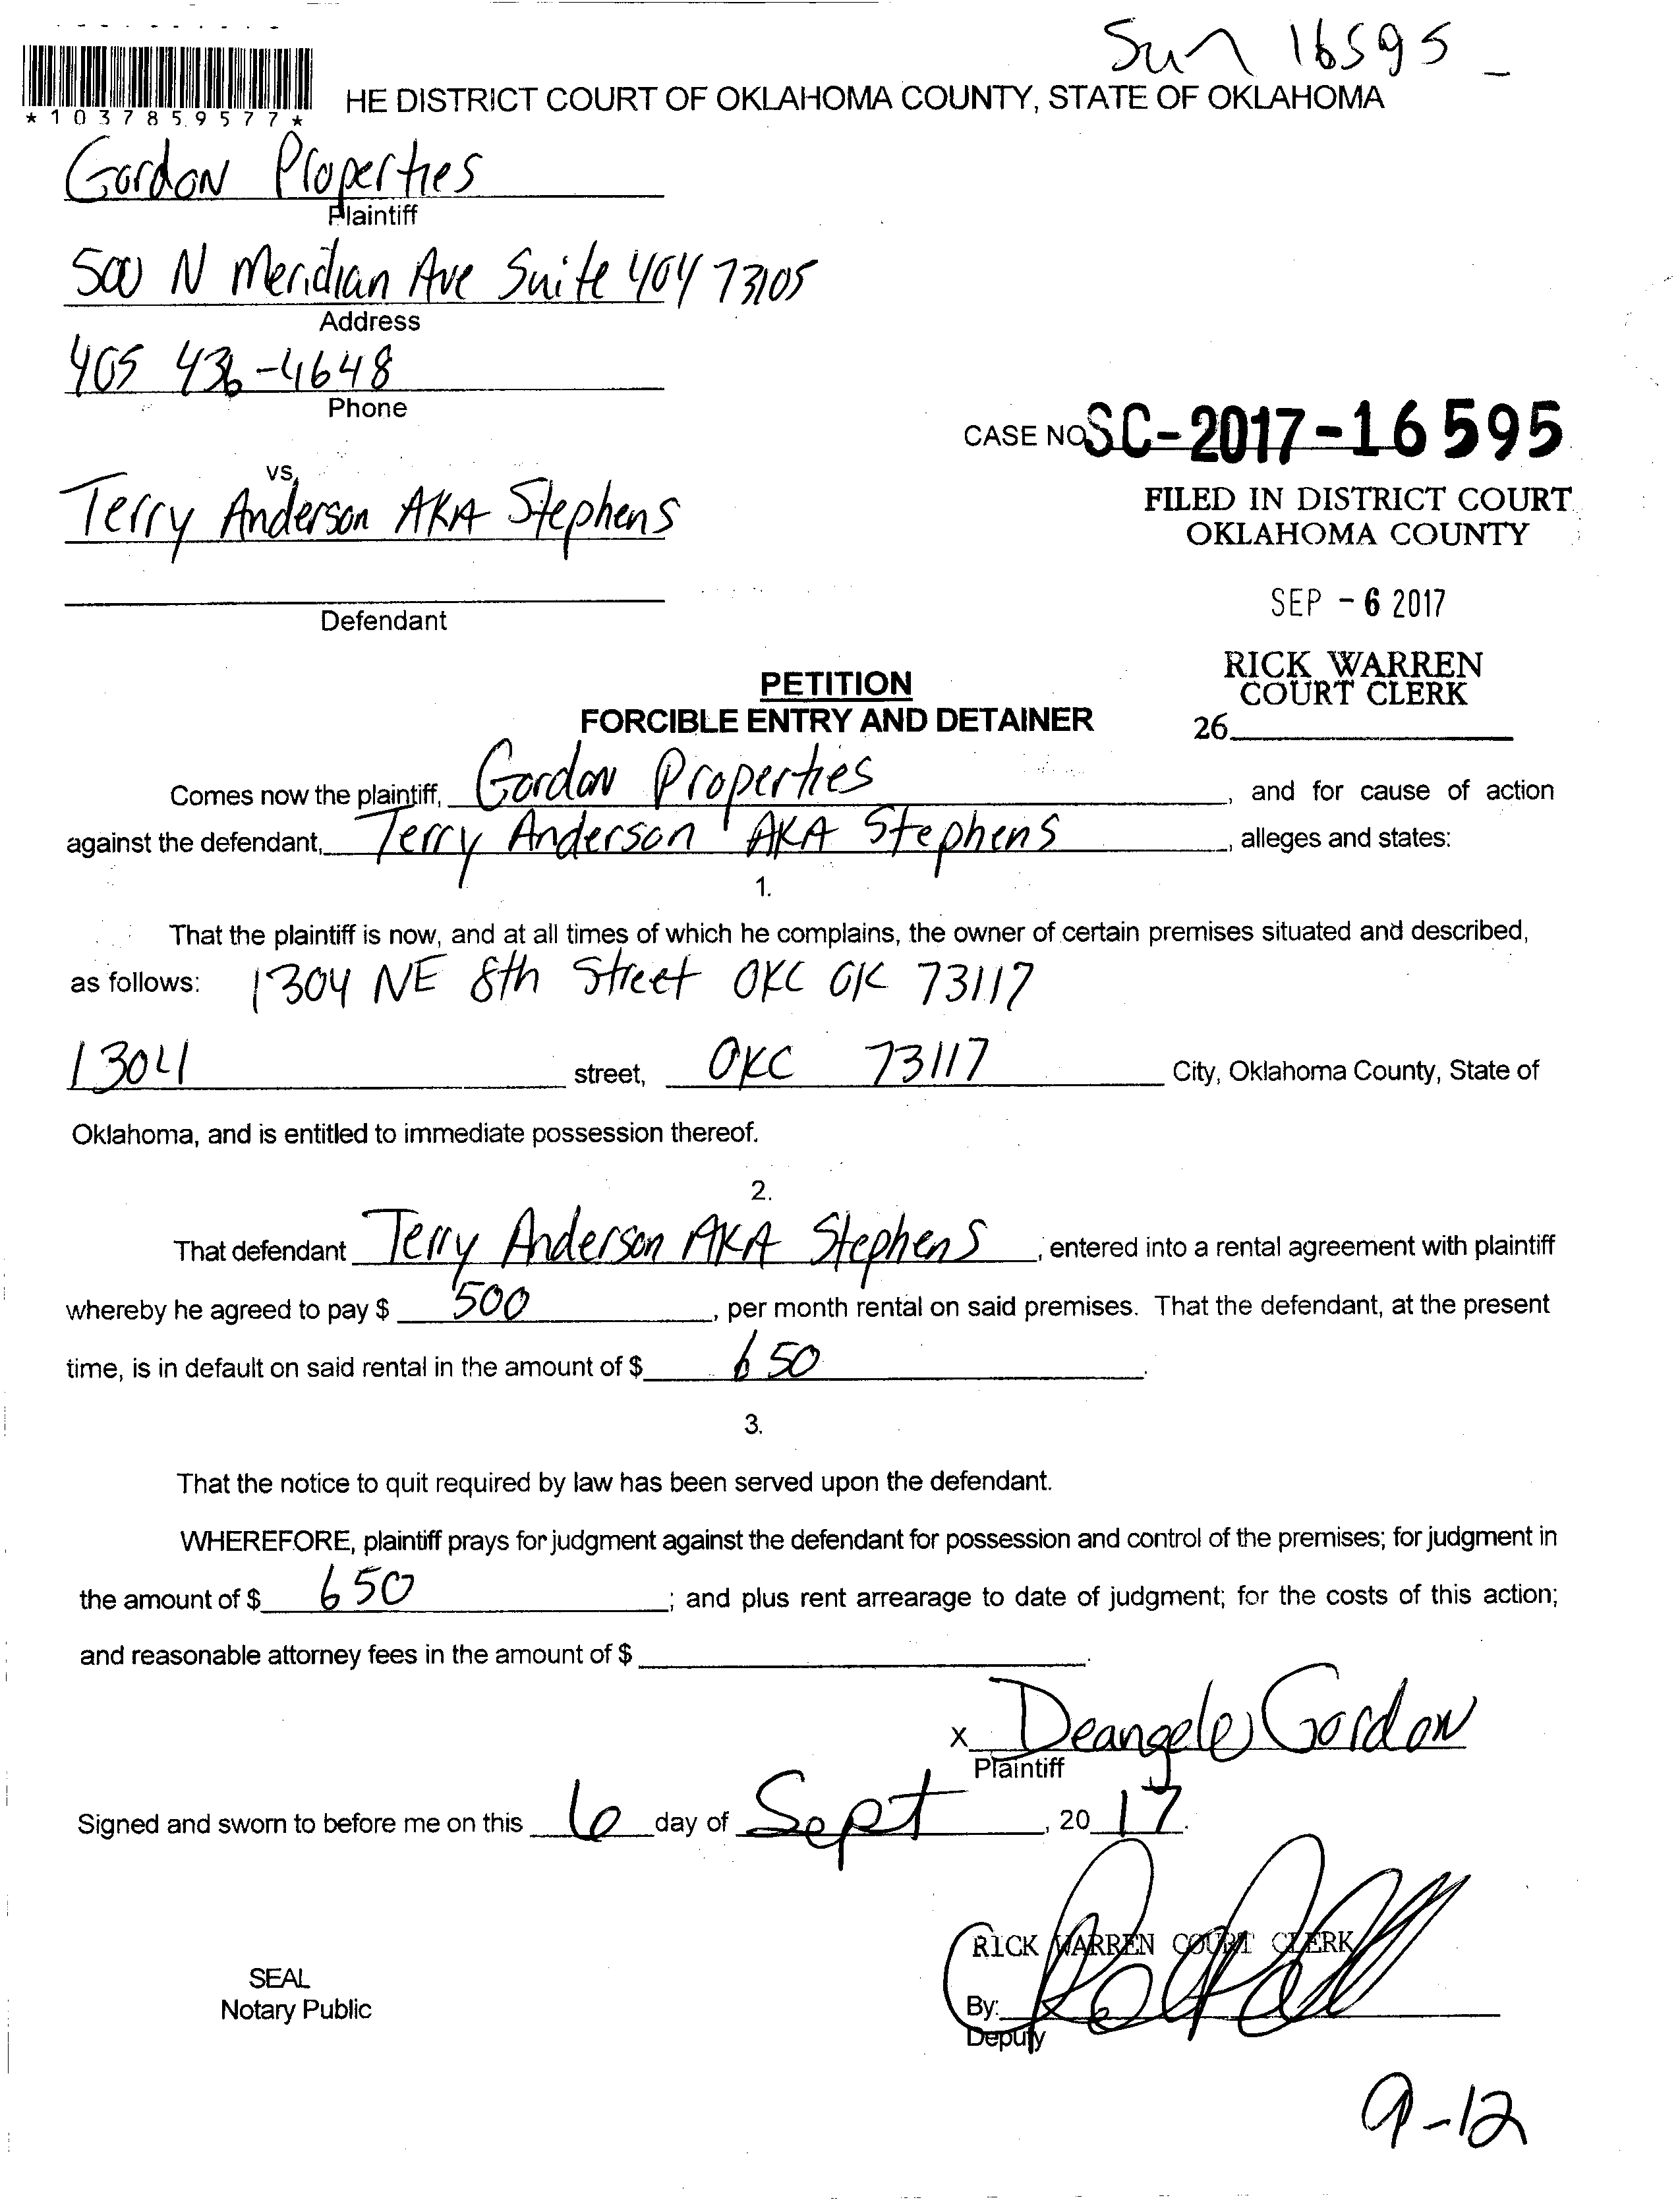 Sun 16595
*1037859577*
HE DISTRICT COURT OF OKLAHOMA COUNTY, STATE OF OKLAHOMA
Gordon Properties
Plaintiff
500 N Meridian Ave Suite 404 73105
Address
405 436-4648
Phone
CASE NO SC-2017-16595
vs.
Terry Anderson AKA Stephens
FILED IN DISTRICT COURT
OKLAHOMA COUNTY
Defendant
SEP - 6 2017
RICK WARREN
COURT CLERK
26
PETITION
FORCIBLE ENTRY AND DETAINER
Comes now the plaintiff, Gordon Properties, and for cause of action
against the defendant, Terry Anderson AKA Stephens, alleges and states:
1.
That the plaintiff is now, and at all times of which he complains, the owner of certain premises situated and described,
as follows: 1304 NE 8th Street OKC OK 73117
1304 street, OKC 73117 City, Oklahoma County, State of
Oklahoma, and is entitled to immediate possession thereof.
2.
That defendant Terry Anderson AKA Stephens, entered into a rental agreement with plaintiff
whereby he agreed to pay $ 500, per month rental on said premises. That the defendant, at the present
time, is in default on said rental in the amount of $ 650.
3.
That the notice to quit required by law has been served upon the defendant.
WHEREFORE, plaintiff prays for judgment against the defendant for possession and control of the premises; for judgment in
the amount of $ 650; and plus rent arrearage to date of judgment; for the costs of this action;
and reasonable attorney fees in the amount of $ .
x Deangelo Gordon
Plaintiff
Signed and sworn to before me on this 6 day of Sept, 20 17.
RICK WARREN COURT CLERK
SEAL
Notary Public
By:
Deputy
9-12